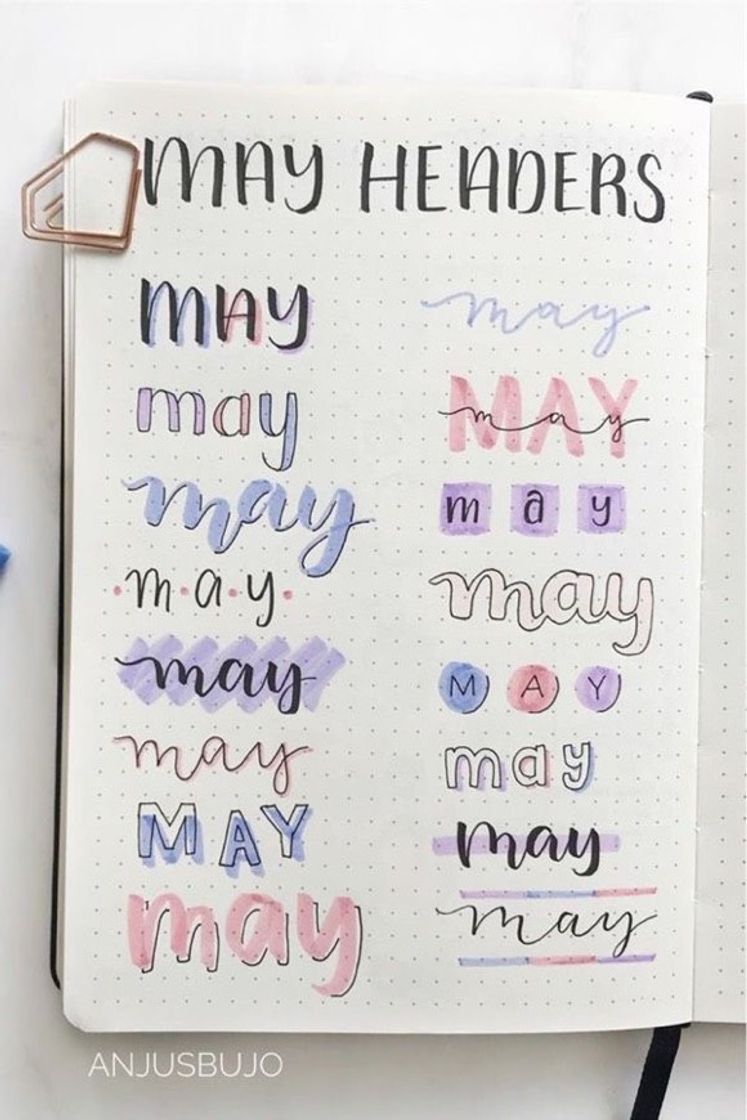 MAY HEADERS
MAY
may
may
·m·a·y·
may
may
MAY
may
may
MAY
may
m a y
may
M A Y
may
may
may
ANJUSBUJO